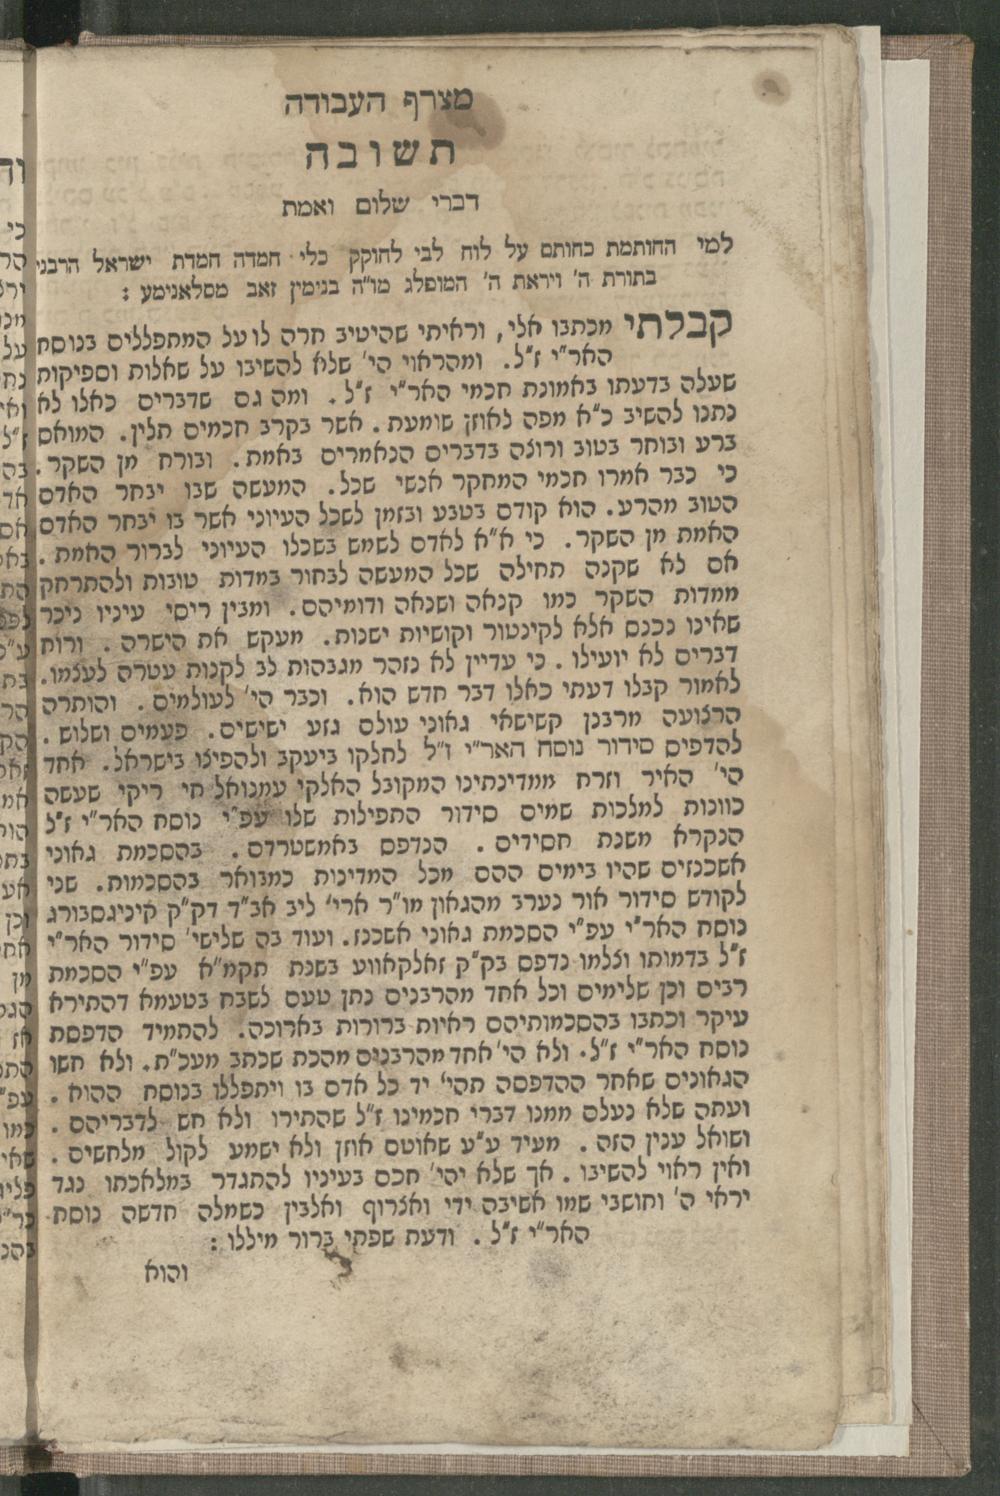 מצרף העבודה
תשובה
דברי שלום ואמת
למי החותמת כחותם על לוח לבי לחוקק כלי חמדה חמדת ישראל הרבני
בתורת ה' ויראת ה' המופלג מו"ה בנימין זאב מסלאנימע :
קבלתי מכתבו אלי, וראיתי שהיטיב חרה לו על המתפללים בנוסח
האר"י ז"ל. ומהראוי הי' שלא להשיבו על שאלות וספיקות
שעלה בדעתו באמונת חכמי האר"י ז"ל. ומה גם שדברים כאלו לא
נתנו להשיב כ"א מפה לאוזן שומעת. אשר בקרב חכמים תלין. המואס
ברע ובוחר בטוב ורוצה בדברים הנאמרים באמת. ובורח מן השקר.
כי כבר אמרו חכמי המחקר אנשי שכל. המעשה שבו יבחר האדם
הטוב מהרע. הוא קודם בטבע ובזמן לשכל העיוני אשר בו יבחר האדם
האמת מן השקר. כי א"א לאדם לשמש בשכלו העיוני לברור האמת.
אם לא שקנה תחילה שכל המעשה לבחור במדות טובות ולהתרחק
ממדות השקר כמו קנאה ושנאה ודומיהם. ומבין ריסי עיניו ניכר
שאינו נכנס אלא לקינטור וקושיות ישנות. מעקש את הישרה. ורוח
דברים לא יועילו. כי עדיין לא נזהר מגבהות לב לקנות עטרה לעצמו.
לאמור קבלו דעתי כאלו דבר חדש הוא. וכבר הי' לעולמים. והותרה
הרצועה מרבנן קשישאי גאוני עולם גזע ישישים. פעמים ושלוש.
להדפים סידור נוסח האר"י ז"ל לחלקו ביעקב ולהפיצו בישראל. אחד
הי' האיר וזרח ממדינתינו המקובל האלקי עמנואל חי ריקי שעשה
כוונות למלכות שמים סידור התפילות שלו עפ"י נוסח האר"י ז"ל
הנקרא משנת חסידים. הנדפס באמשטרדם. בהסכמת גאוני
אשכנזים שהיו בימים ההם מכל המדינות כמבואר בהסכמות. שני
לקודש סידור אור נערב מהגאון מו"ר ארי' ליב אב"ד דק"ק קיניגסבורג
נוסח האר"י עפ"י הסכמת גאוני אשכנז. ועוד בה שלישי' סידור האר"י
ז"ל בדמותו וצלמו נדפס בק"ק זאלקאווע בשנת תקמ"א עפ"י הסכמת
רבים וכן שלימים וכל אחד מהרבנים נתן טעם לשבח בטעמא דהתירא
עיקר וכתבו בהסכמותיהם ראיות ברורות בארוכה. להתמיד הדפסת
נוסח האר"י ז"ל. ולא הי' אחד מהרבנים מהכת שכתב מעכ"ת. ולא חשו
הגאונים שאחר ההדפסה תהי' יד כל אדם בו ויתפללו בנוסח ההוא.
ועתה שלא נעלם ממנו דברי חכמינו ז"ל שהתירו ולא חש לדבריהם.
ושואל ענין הזה. מעיד ע"ע שאוטם אוזן ולא ישמע לקול מלחשים.
ואין ראוי להשיבו. אך שלא יהי' חכם בעיניו להתגדר במלאכתו נגד
יראי ה' וחושבי שמו אשיבה ידי ואצרוף ואלבין כשמלה חדשה נוסח
האר"י ז"ל. ודעת שפתי ברור מיללו :
והוא